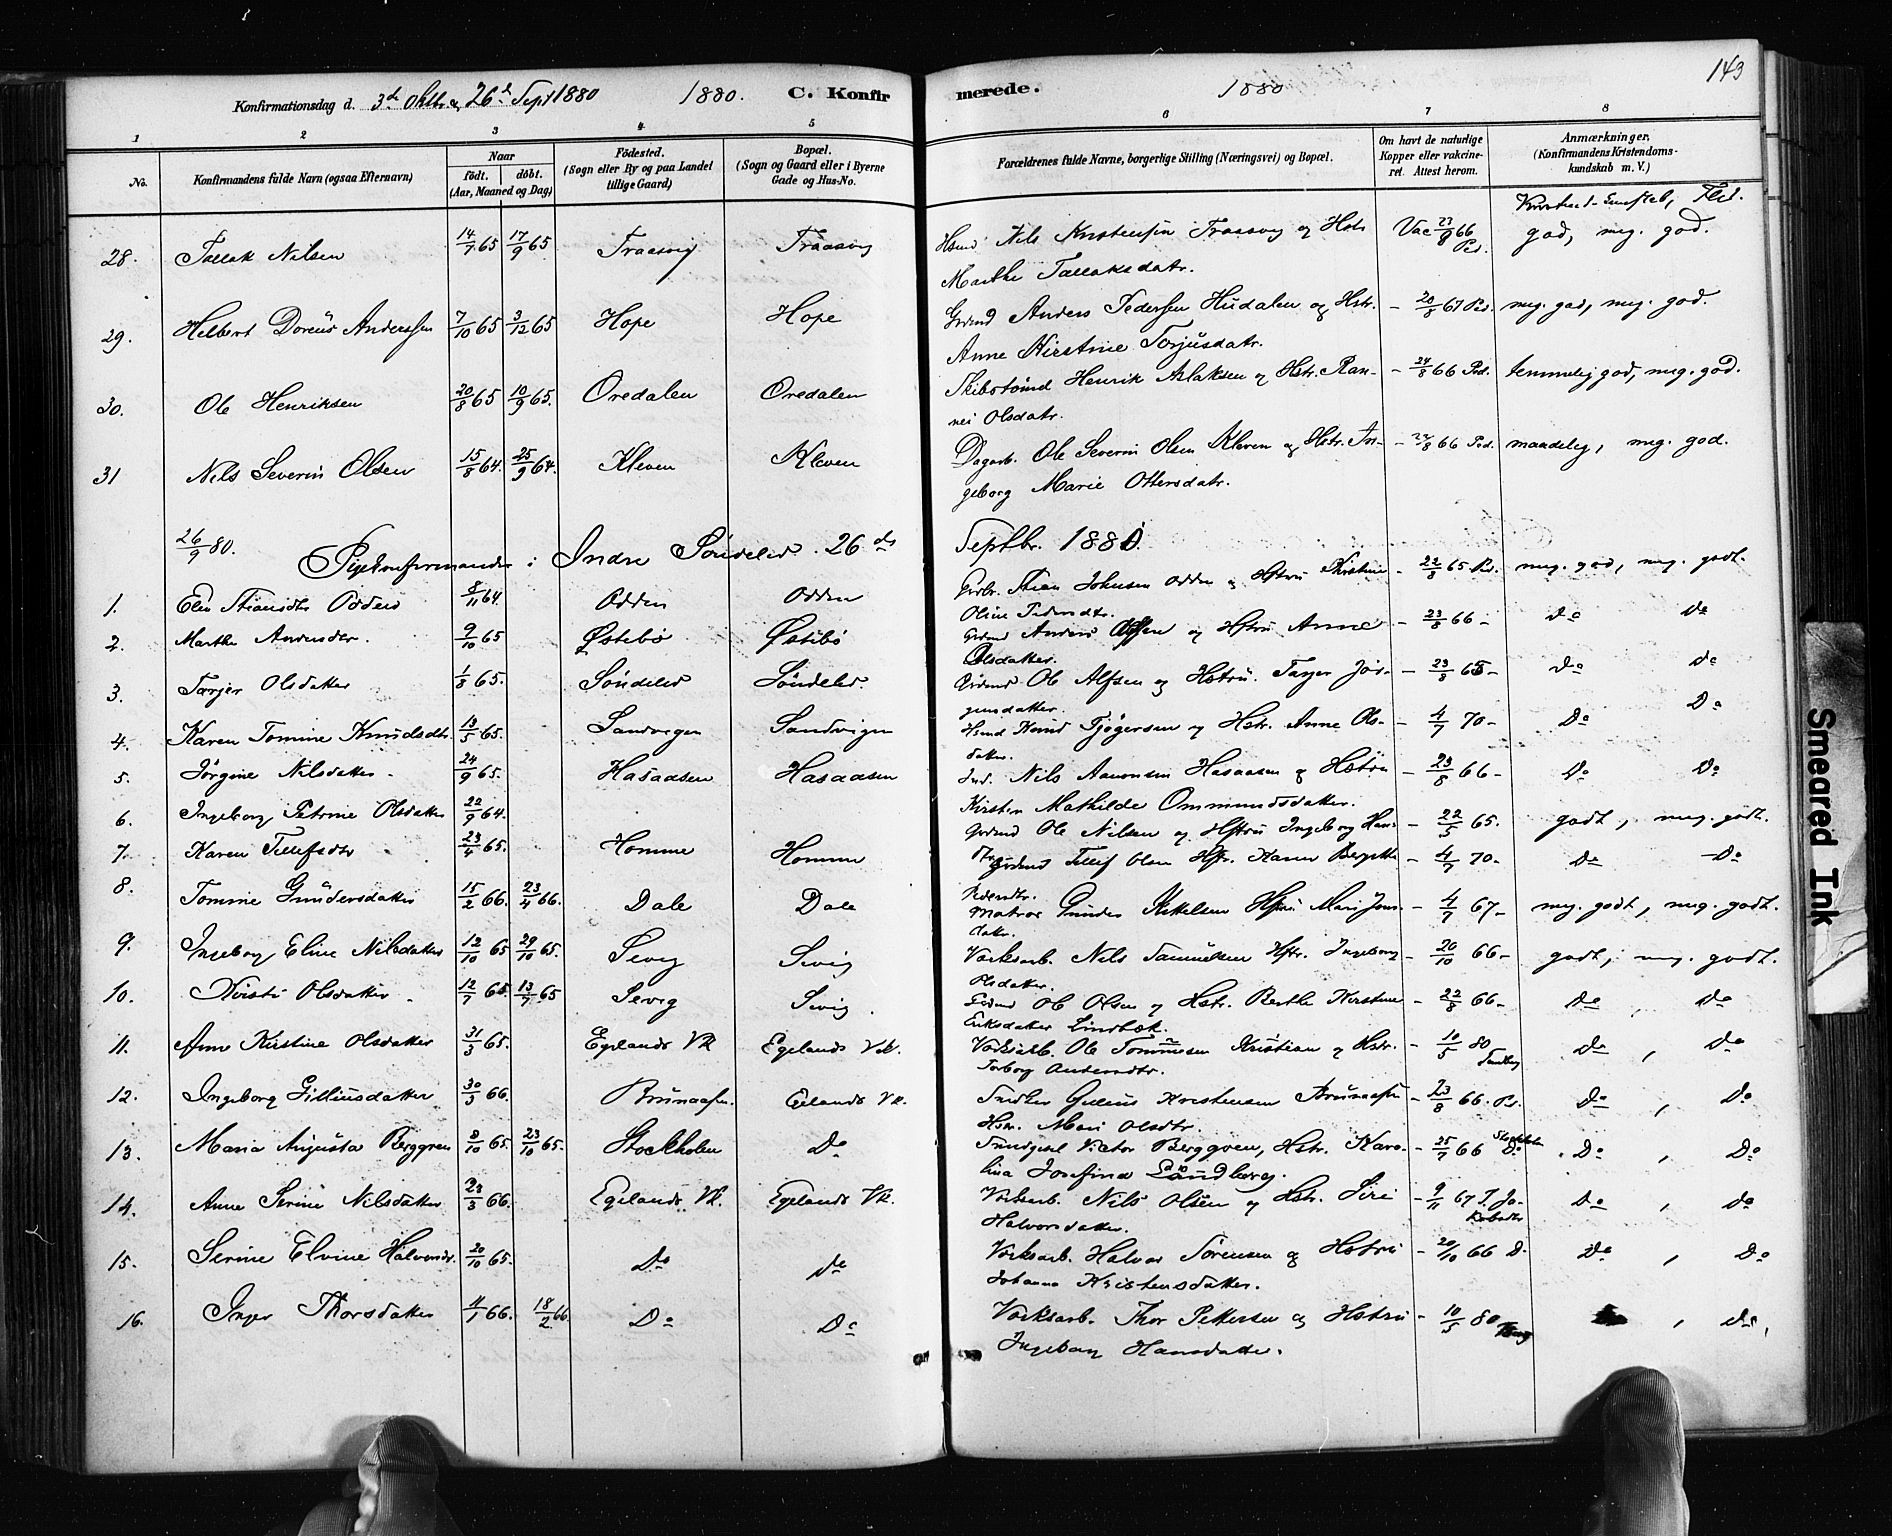 143
Konfirmationsdag d. 3de Oktbr og 26de Sept 1880 1880. C. Konfirmerede. 1880
1 2 3 4 5 6 7 8
No. Konfirmandens fulde Navn (ogsaa Efternavn) Naar født. døbt. (Aar, Maaned og Dag) Fødested. (Sogn eller By og paa Landet tillige Gaard) Bopæl. (Sogn og Gaard eller i Byerne Gade og Hus-No. Forældrenes fulde Navne, borgerlige Stilling (Næringsvei) og Bopæl. Om havt de naturlige Kopper eller vakcineret. Attest herom. Anmærkninger. (Konfirmandens Kristendomskundskab m. V.)
Flid.
28. Tallak Nilsen 14/7 65 17/9 65 Traasvig Traasvig Nils Kristensen Traasvig og Hstr Vac 23/8 66 Pd. god, meg. god.
Marthe Tallaksdatr.
29. Helbert Doreus Anderssen 7/10 65 3/12 65 Hope Hope Grdmd Anders Pedersen Hudalen og Hstr. - 20/8 67 Pd. meg. god, meg. god.
Anne Kirstine Torjusdatr.
30. Ole Henriksen 20/8 65 10/9 65. Oredalen Oredalen Skibstømd Henrik Aslaksen og Hstr. Ran- - 24/8 66 Pd. temmelig god, meg. god.
nei Olsdatr.
31 Nils Severin Olsen 15/8 64. 25/9 64. Kleven Kleven Dagarb. Ole Severin Olsen Kleven og Hstr. In- - 24/8 66 Pd. maadelig, meg. god.
geborg Marie Ottersdatr.
26/9 80. Pigekonfirmander i Indre Søndeled. 26de Septbr. 1880.
1. Elen Stiansdtr Odden 8/11 64. Odden Odden Stian Johnsen Odden og Hstru Kirstine - 22/8 65 Pd. meg. god, meg. godt.
Oline Pedersdtr.
2. Marthe Andersdtr. 9/10 65 Østebø Østebø Grdmd Anders Olsen og Hstru Anne - 23/8 66 - Do Do
Olsdatter.
3. Torjer Olsdatter 1/8 65. Søndeled Søndeled. Grdmd Ole Alfsen og Hstru. Torjer Jør- - 23/8 66 - Do Do
gensdatter.
4. Karen Tomine Knudsdtr. 13/5 65. Sandvigen Sandvigen Hsmd Knud Tjøgersen og Hstr. Anne Ols- - 4/7 70 - Do Do
datter.
5. Jørgine Nilsdatter. 24/9 65. Hasaasen Hasaasen Ind. Nils Aanonsen Hasaasen og Hstru - 23/8 66 - Do Do
Kirsten Mathilde Ommundsdatter.
6. Ingeborg Petrine Olsdatter 22/9 64. Grdmd Ole Nilsen og Hstru Ingeborg Han- - 22/5 65. godt, meg. godt.
7. Karen Tellefsdtr 23/4 65. Homme Homme Grdmd Tellef Olsen Hstr. Karen Bergitte - 4/7 70 - Do Do
Pedersdtr.
8. Tomine Gundersdatter 15/2 66. 23/4 66. Dale Dale Matros Gunder Kittelsen Hstru Mari Jens- - 4/7 67 - meg. godt, meg. godt.
datr.
9. Ingeborg Eline Nilsdatter 12/10 65 29/10 65. Sevig Sevig Værksarb. Nils Samuelsen Hstr. Ingeborg - 20/10 66 - godt, meg. godt.
Olsdatter.
10. Kirsti Olsdatter 12/7 65. 13/7 65 Sevig Sevig. Grdmd Ole Olsen og Hstr. Berthe Kirstine - 22/8 66 - Do , Do
Eriksdatter Lindbæk.
11. Ane Kirstine Olsdatter 31/3 65. Egelands Vk Egelands Vk. Værksarb. Ole Tommesen Kristian og Hstr. - 10/5 80 Do , Do
Torborg Andersdtr.
12. Ingeborg Gilliusdatter 30/3 66. Brunaasen. Egelands Vk. Snedker Gullius Kristensen Brunaasen - 23/8 66. Pd. Do , Do
Hstr. Mari Olsdtr.
13. Maria Augusta Berggren 2/10 65. 23/10 65. Stockholm Do Smedgesel Victor Berggren, Hstr. Karo- - 25/7 66 Stockholm Do . Do , Do
lina Josefina Landberg.
14. Anne Serine Nilsdatter 23/3 66. Egelands Vk. Egelands Vk. Værksarb. Nils Olsen og Hstr. Siri - 9/11 67 J Ja- Do , Do
Halvorsdatter. kobsdtr
15. Serine Elvine Halvorsdr. 20/10 65. Do Do Værksarb. Halvor Sørensen og Hstru - 20/10 66 D. Do , Do
Johanne Kristensdatter.
16. Inger Thorsdatter 4/1 66. 18/2 66. Do Do Værksarb. Thor Pettersen og Hstru - 10/5 80 , Do,
Ingeborg Hansdatter.
Smeared Ink